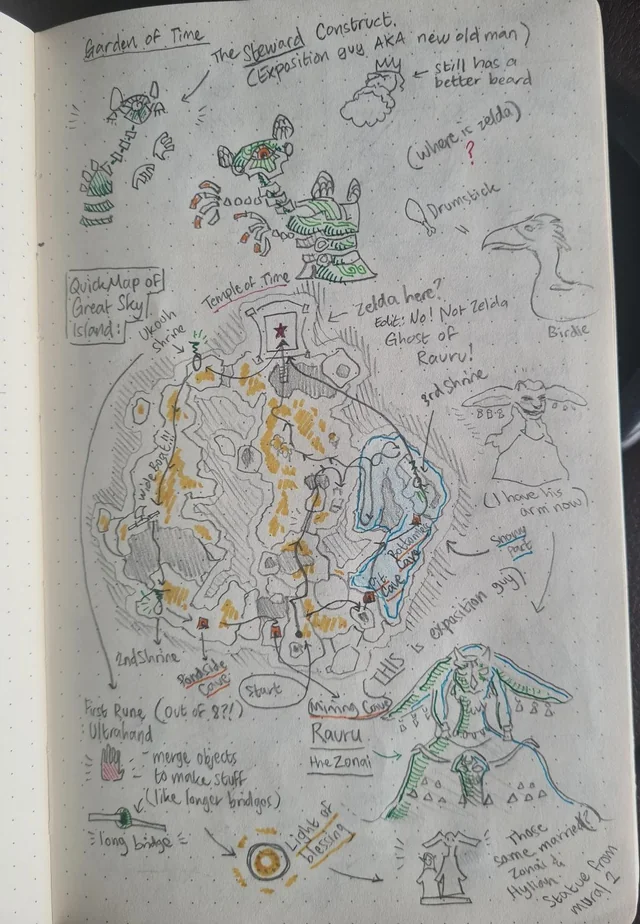 Garden of Time
The Steward Construct.
(Exposition guy AKA new old man)
still has a
better beard
(where is zelda)
?
Drumstick
Birdie
Quick Map of
Great Sky
Island:
Temple of Time
Ukouh
Shrine
Zelda here?
Edit: No! Not Zelda
Ghost of
Rauru!
3rd Shrine
(I have his
arm now)
wide Boat!!!
Snowy
Part
Bottomless
Cave
Pit
Cave
(THIS is exposition guy)
2nd Shrine
Pondside
Cave
Start
Mining Cave
First Rune (out of 8?!)
Ultrahand
- merge objects
to make stuff
(like longer bridges)
long bridge
Rauru
the Zonai
Light of
blessing
Those
same married?
Zonai &
Hylian.
Statue from
mural 2